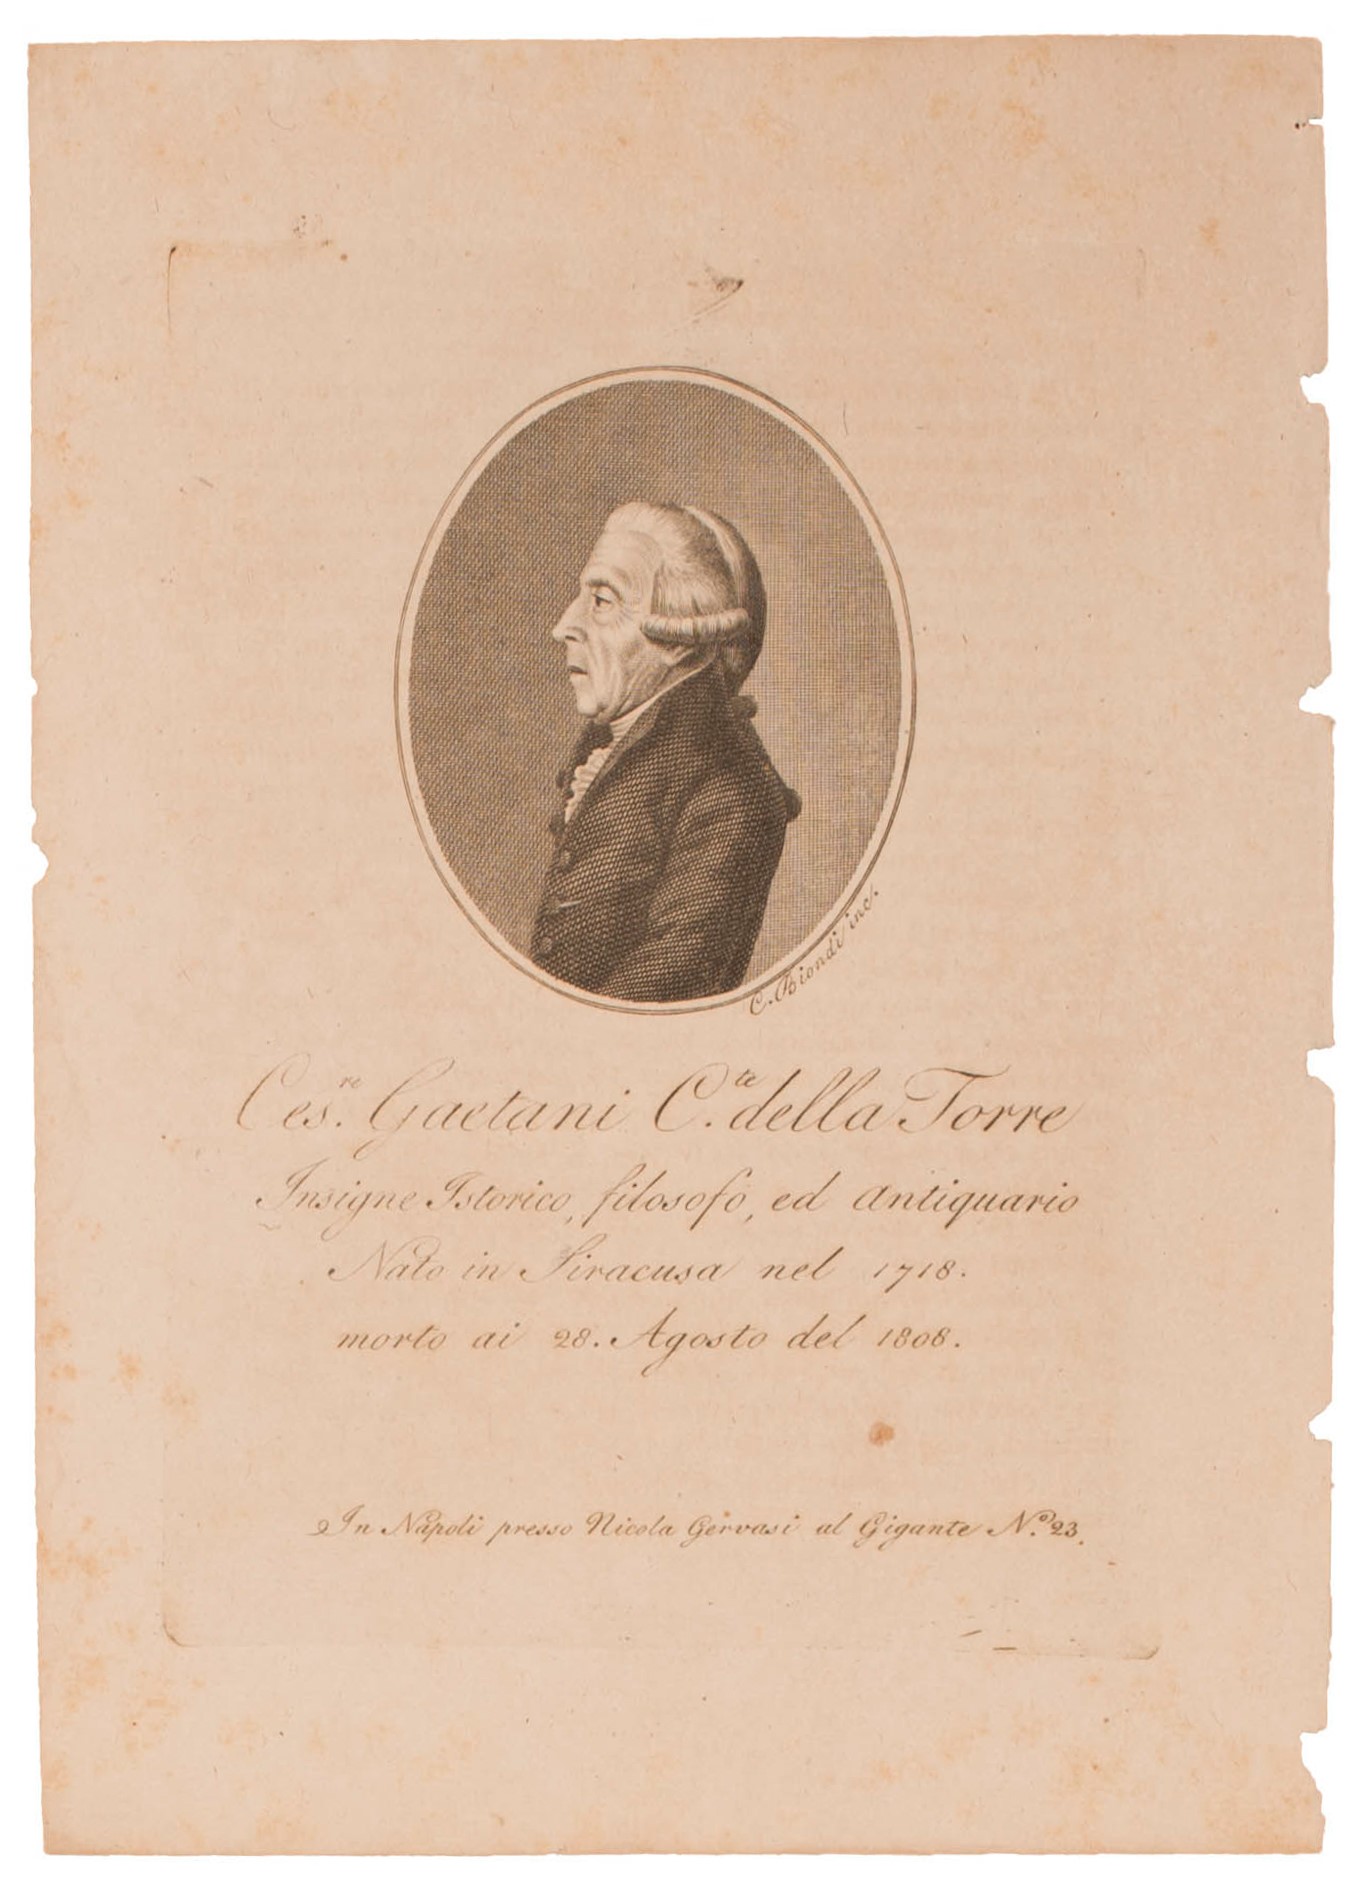 C. Biondi inc.
Ces.re Gaetani C.te della Torre
Insigne Istorico, filosofo, ed antiquario
Nato in Siracusa nel 1718.
morto ai 28. Agosto del 1808.
In Napoli presso Nicola Gervasi al Gigante N.o 23.